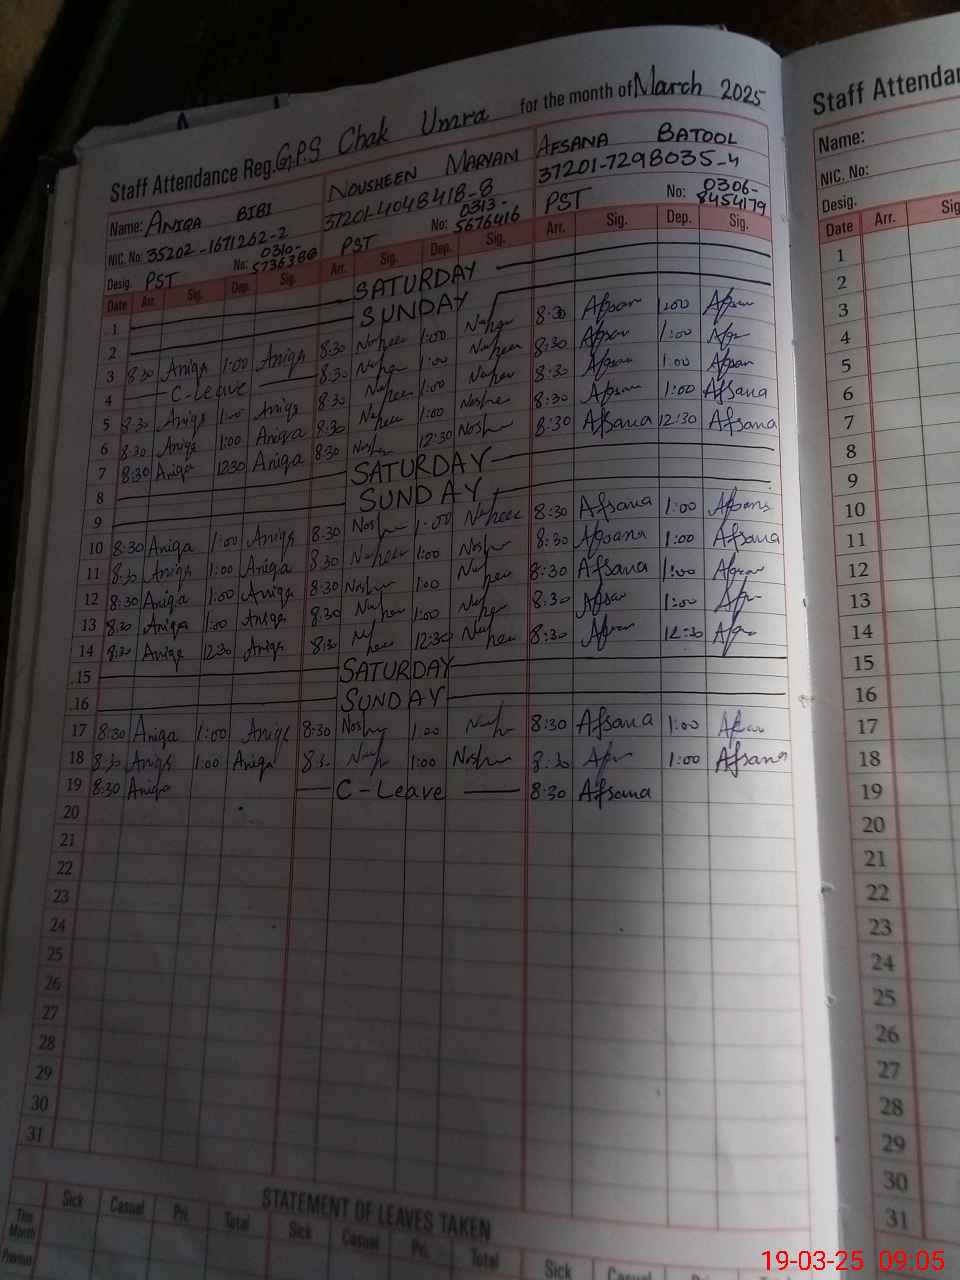 Staff Attendance Reg. G.P.S Chak Umra for the month of March 2025
Name: ANIQA BIBI NOUSHEEN MARYAM AFSANA BATOOL
NIC. No: 35202-1671262-2 37201-4048418-8 37201-7298035-4
Desig. PST No: 0310- PST No: 0313-5676416 PST No: 0306-8454179
Date Arr. Sig. Dep. Sig. Arr. Sig. Dep. Sig. Arr. Sig. Dep. Sig.
1 SATURDAY
2 SUNDAY
3 8:30 Aniqa 1:00 Aniqa 8:30 1:00 8:30 1:00
4 C-Leave 8:30 1:00 8:30 1:00
5 8:30 Aniqa 1:00 Aniqa 8:30 1:00 8:30 1:00
6 8:30 Aniqa 1:00 Aniqa 8:30 1:00 8:30 1:00 Afsana
7 8:30 Aniqa 12:30 Aniqa 8:30 12:30 8:30 Afsana 12:30 Afsana
8 SATURDAY
9 SUNDAY
10 8:30 Aniqa 1:00 Aniqa 8:30 1:00 8:30 Afsana 1:00 Afsana
11 8:30 Aniqa 1:00 Aniqa 8:30 1:00 8:30 Afsana 1:00 Afsana
12 8:30 Aniqa 1:00 Aniqa 8:30 1:00 8:30 Afsana 1:00
13 8:30 Aniqa 1:00 Aniqa 8:30 1:00 8:30 1:00
14 8:30 Aniqa 12:30 Aniqa 8:30 12:30 8:30 12:30
15 SATURDAY
16 SUNDAY
17 8:30 Aniqa 1:00 Aniqa 8:30 1:00 8:30 Afsana 1:00
18 8:30 Aniqa 1:00 Aniqa 1:00 8:30 1:00 Afsana
19 8:30 Aniqa C-Leave 8:30 Afsana
20
21
22
23
24
25
26
27
28
29
30
31
STATEMENT OF LEAVES TAKEN
Sick Casual Pri. Total Sick Casual Pri. Total Sick Casual
This Month
Previous
Staff Attendan
Name:
NIC. No:
Desig.
Date Arr. Sig
1
2
3
4
5
6
7
8
9
10
11
12
13
14
15
16
17
18
19
20
21
22
23
24
25
26
27
28
29
30
31
19-03-25 09:05